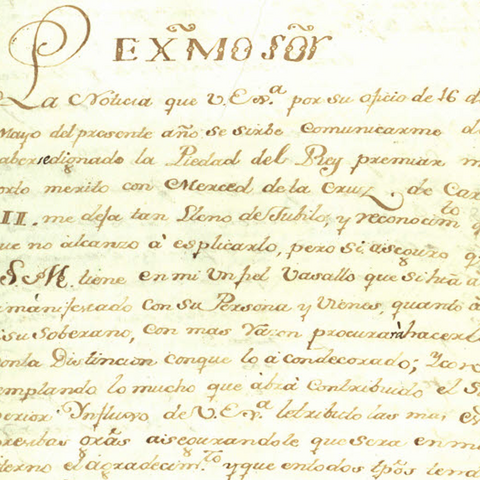 EXM̃O SÕR
La Noticia que V.Exª por su oficio de 16 d
Mayo del presente año se sirbe comunicarme d
aberse dignado la Piedad del Rey premiar m
orto merito con Merced de la Cruz de Car
III. me deja tan lleno de Jubilo, y reconocim.to q
ue no alcanzo à esplicarlo, pero si aseguro q
S. M. tiene en mi un fiel Vasallo que si hàa a
manifestado con su Persona y Vienes, quanto à
su Soberano, con mas rason procurarà hacerl
con la Distincion conque lo à condecorado; Y co
templando lo mucho que abrà Contribuido el S
perior Ynfluxo de V.Exª le tributo las mas ex
presibas grãs aisegurandole que sera en m
eterno el agradecim.to y que en todos tp̃os tend